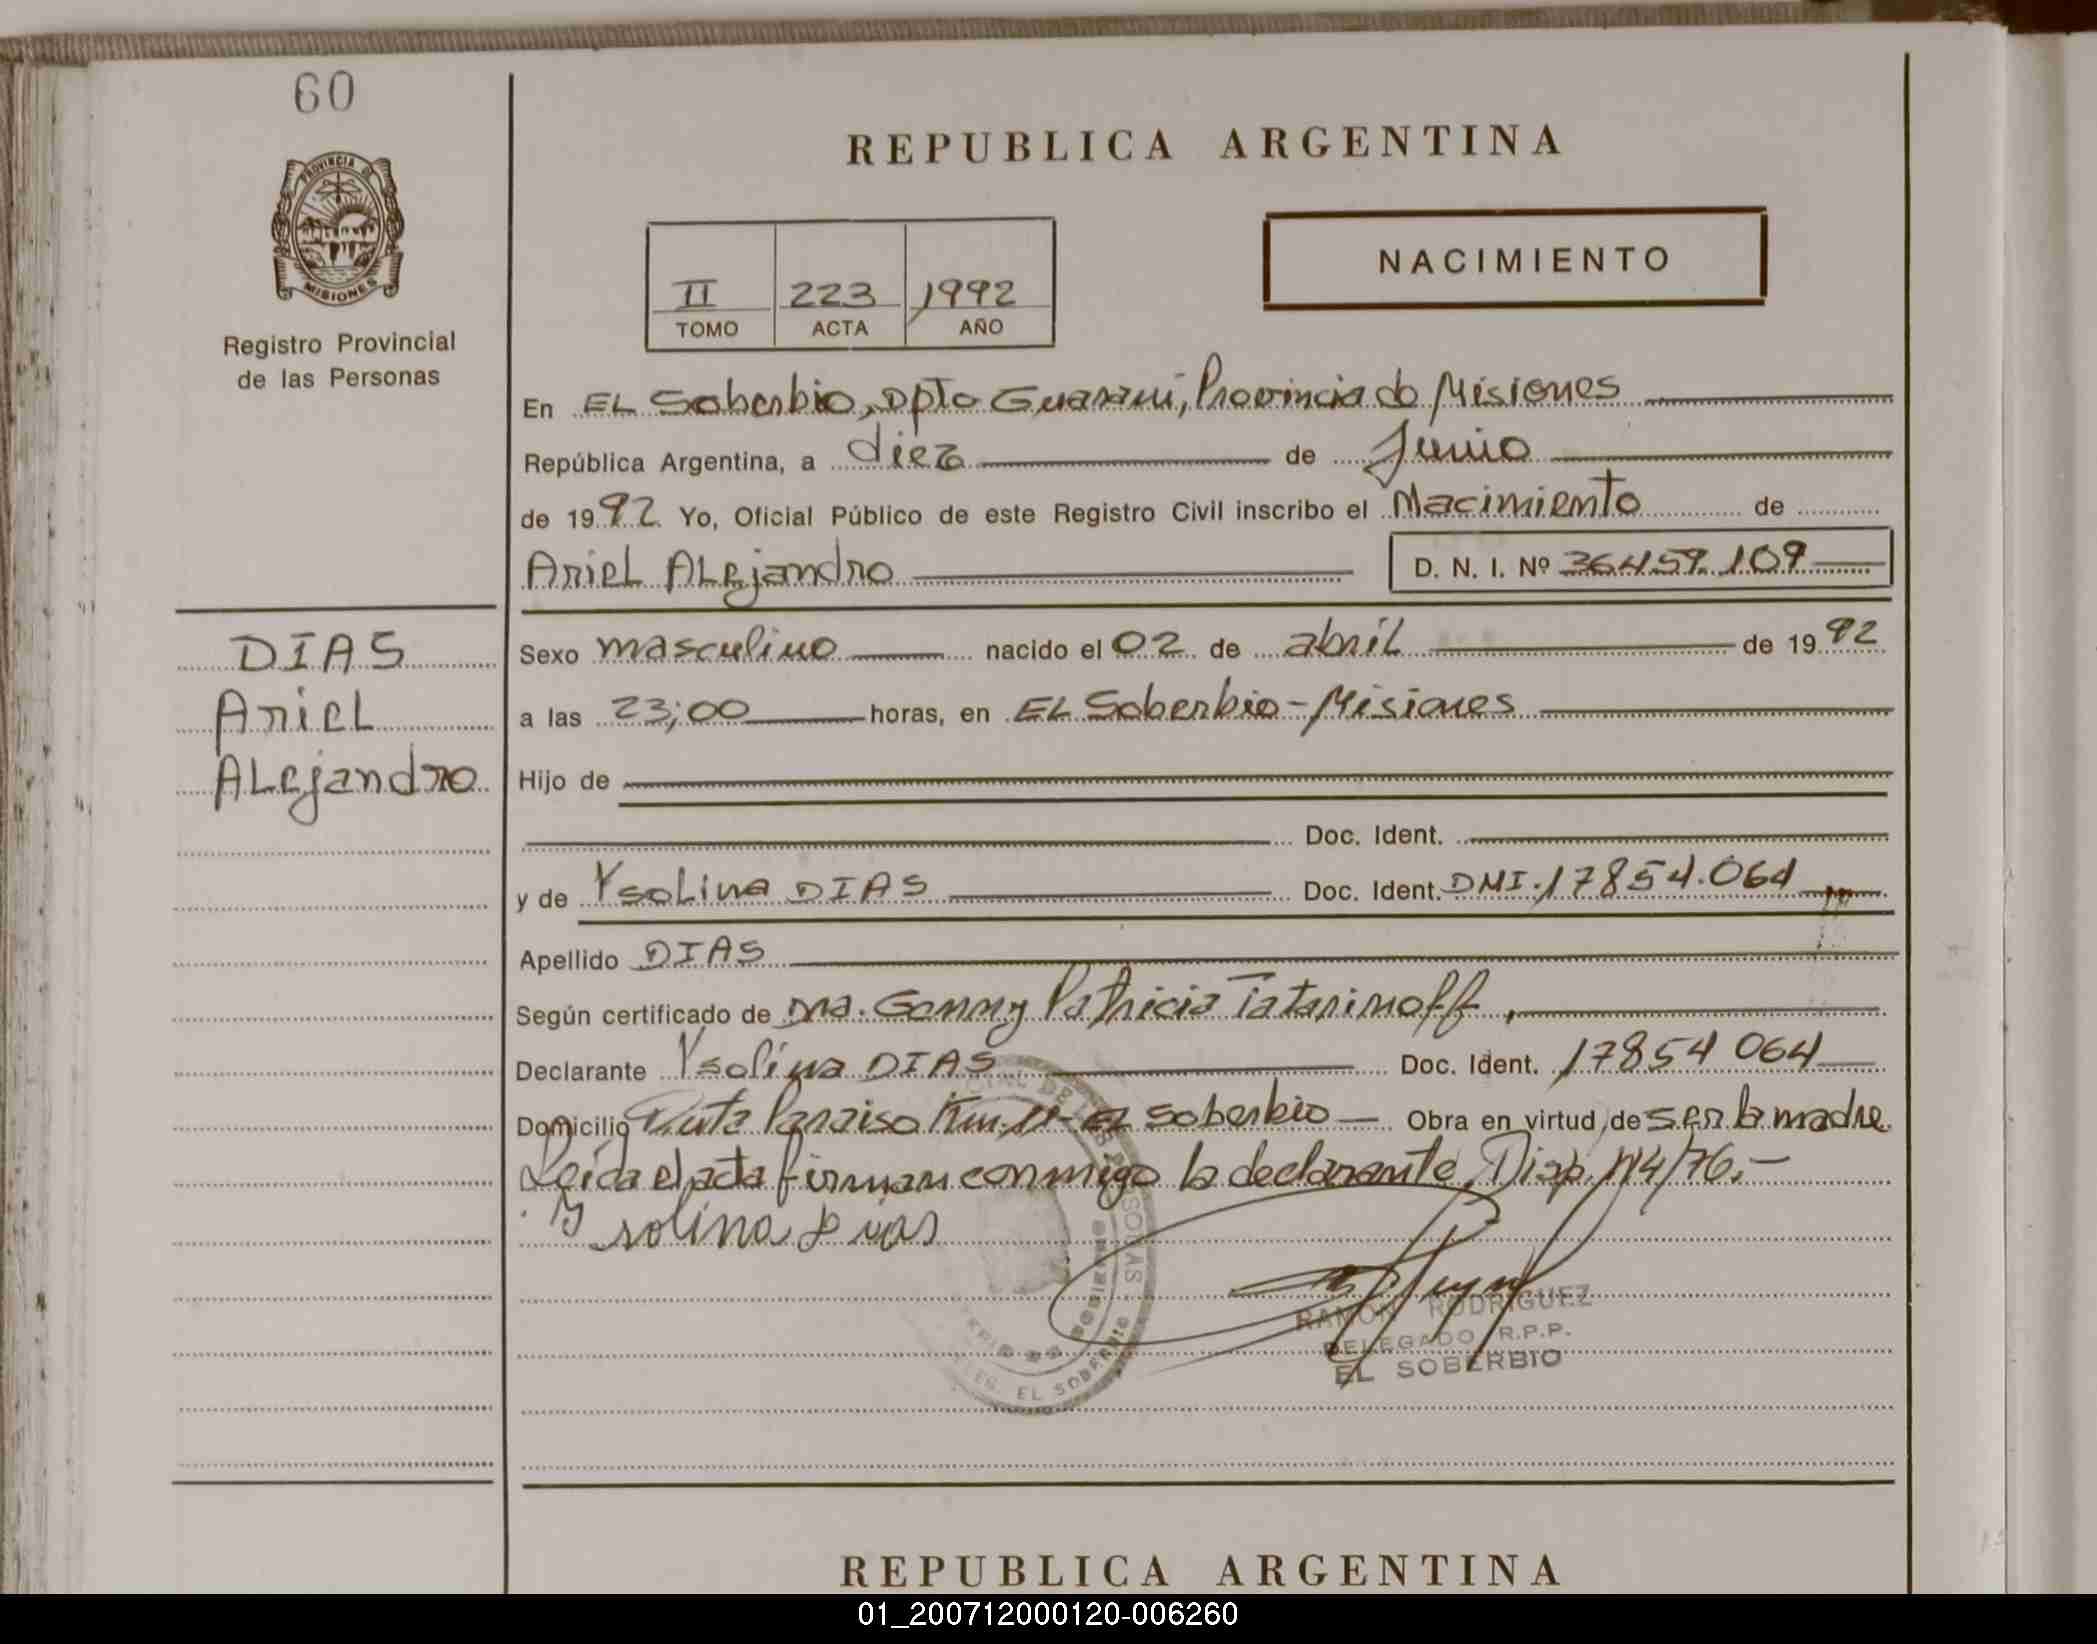 60
REPUBLICA ARGENTINA
PROVINCIA DE
MISIONES
Registro Provincial
de las Personas
II 223 1992
TOMO ACTA AÑO
NACIMIENTO
En EL Soberbio, Dpto Guaraní, Provincia de Misiones
República Argentina, a diez de Junio
de 1992 Yo, Oficial Público de este Registro Civil inscribo el Nacimiento de
Ariel Alejandro D. N. I. Nº 36.459.109
DIAS
Ariel
Alejandro
Sexo masculino nacido el 02 de abril de 1992
a las 23;00 horas, en EL Soberbio - Misiones
Hijo de
Doc. Ident.
y de Ysolina DIAS Doc. Ident. DNI. 17854.064
Apellido DIAS
Según certificado de Dra. Patricia Tatarinoff,
Declarante Ysolina DIAS Doc. Ident. 17854064
Domicilio Ruta Paraiso Km. - EL Soberbio - Obra en virtud de ser la madre
Leída el acta firman conmigo la declarante, Disp. Nº4/76.-
Ysolina Dias
RAMON RODRIGUEZ
DELEGADO R.P.P.
EL SOBERBIO
EL SOBERBIO
REPUBLICA ARGENTINA
01_200712000120-006260